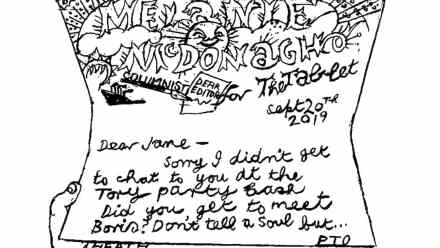 MELANIE
McDONAGH
COLUMNIST
DEAR
EDITOR
for The Tablet
Sept 20TH
2019
Dear Jane -
Sorry I didn't get
to chat to you at the
Tory party bash
Did you get to meet
Boris? Don't tell a soul but...
PTO
HEATH